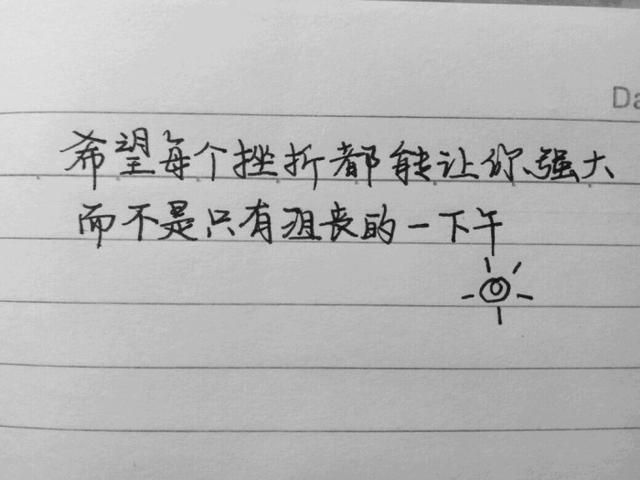 Da
希望每个挫折都能让你强大
而不是只有沮丧的一下午